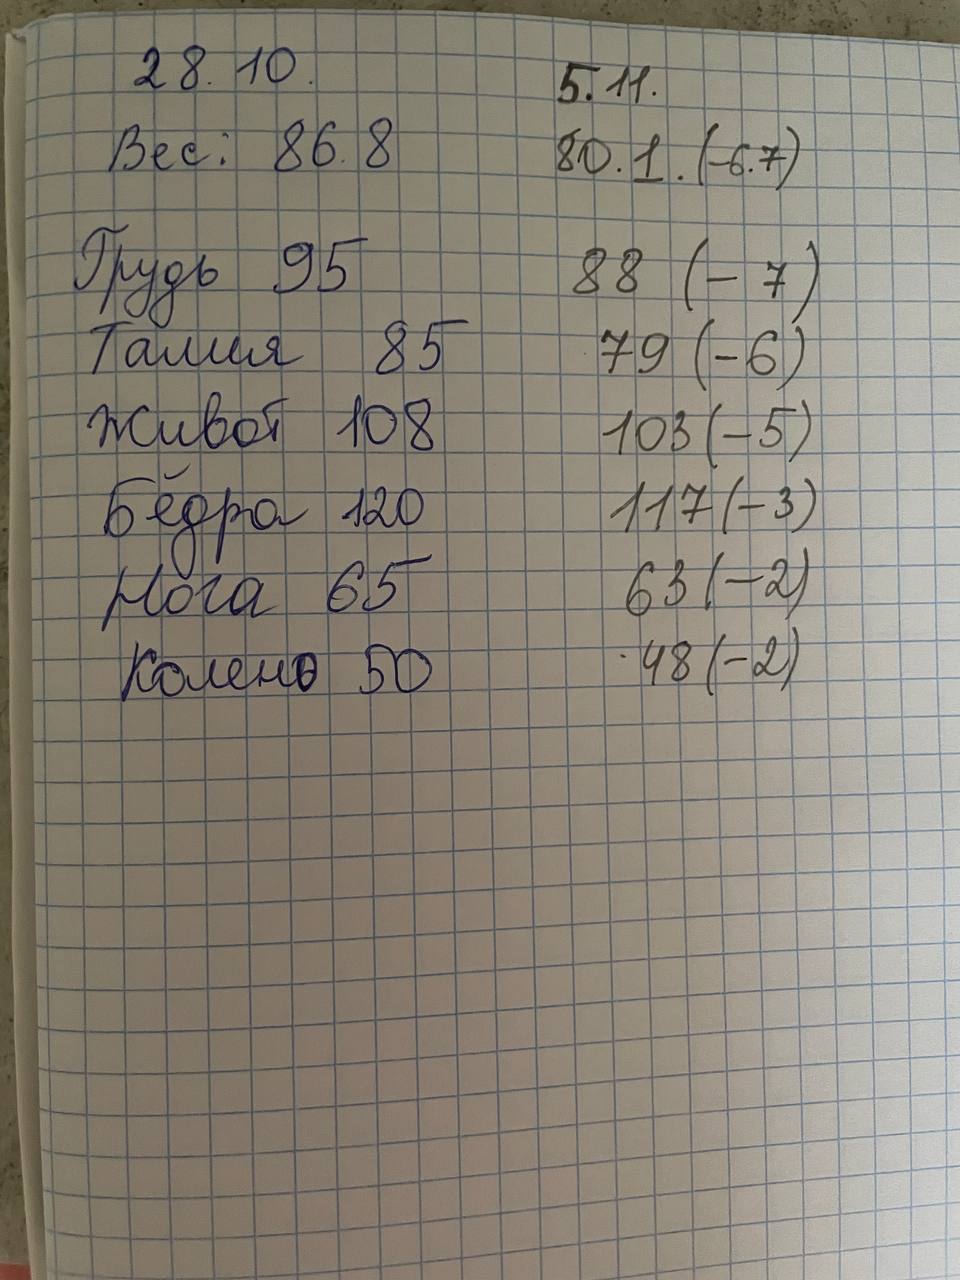 28.10. 5.11.
Вес: 86.8 80.1. (-6.7)
Грудь 95 88 (- 7)
Талия 85 79 (-6)
Живот 108 103 (-5)
Бёдра 120 117 (-3)
Нога 65 63 (-2)
Колено 50 48 (-2)